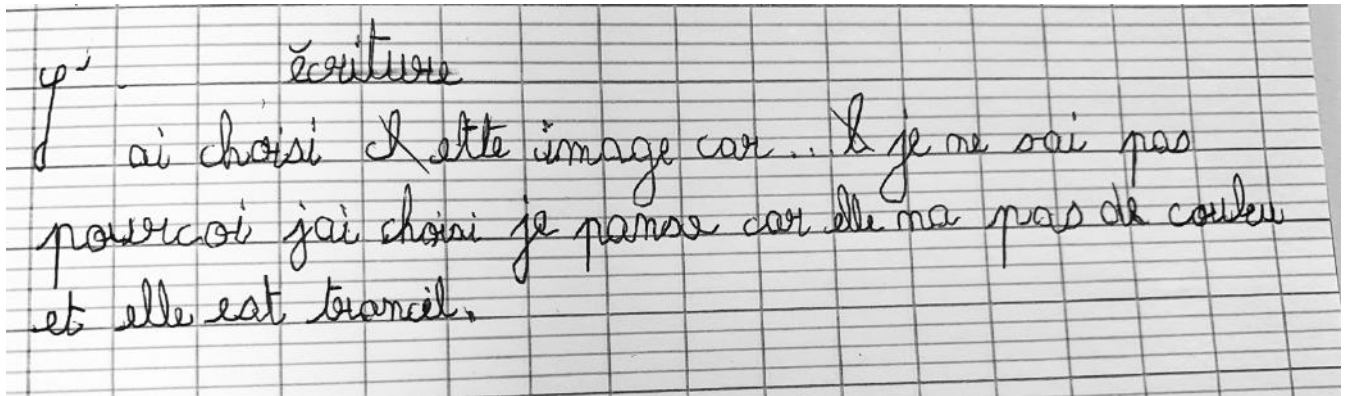 écriture
J'ai choisi cette image car.. je ne sai pas
pourcoi jai choisi je panse car elle na pas de couleu
et elle est trancil.